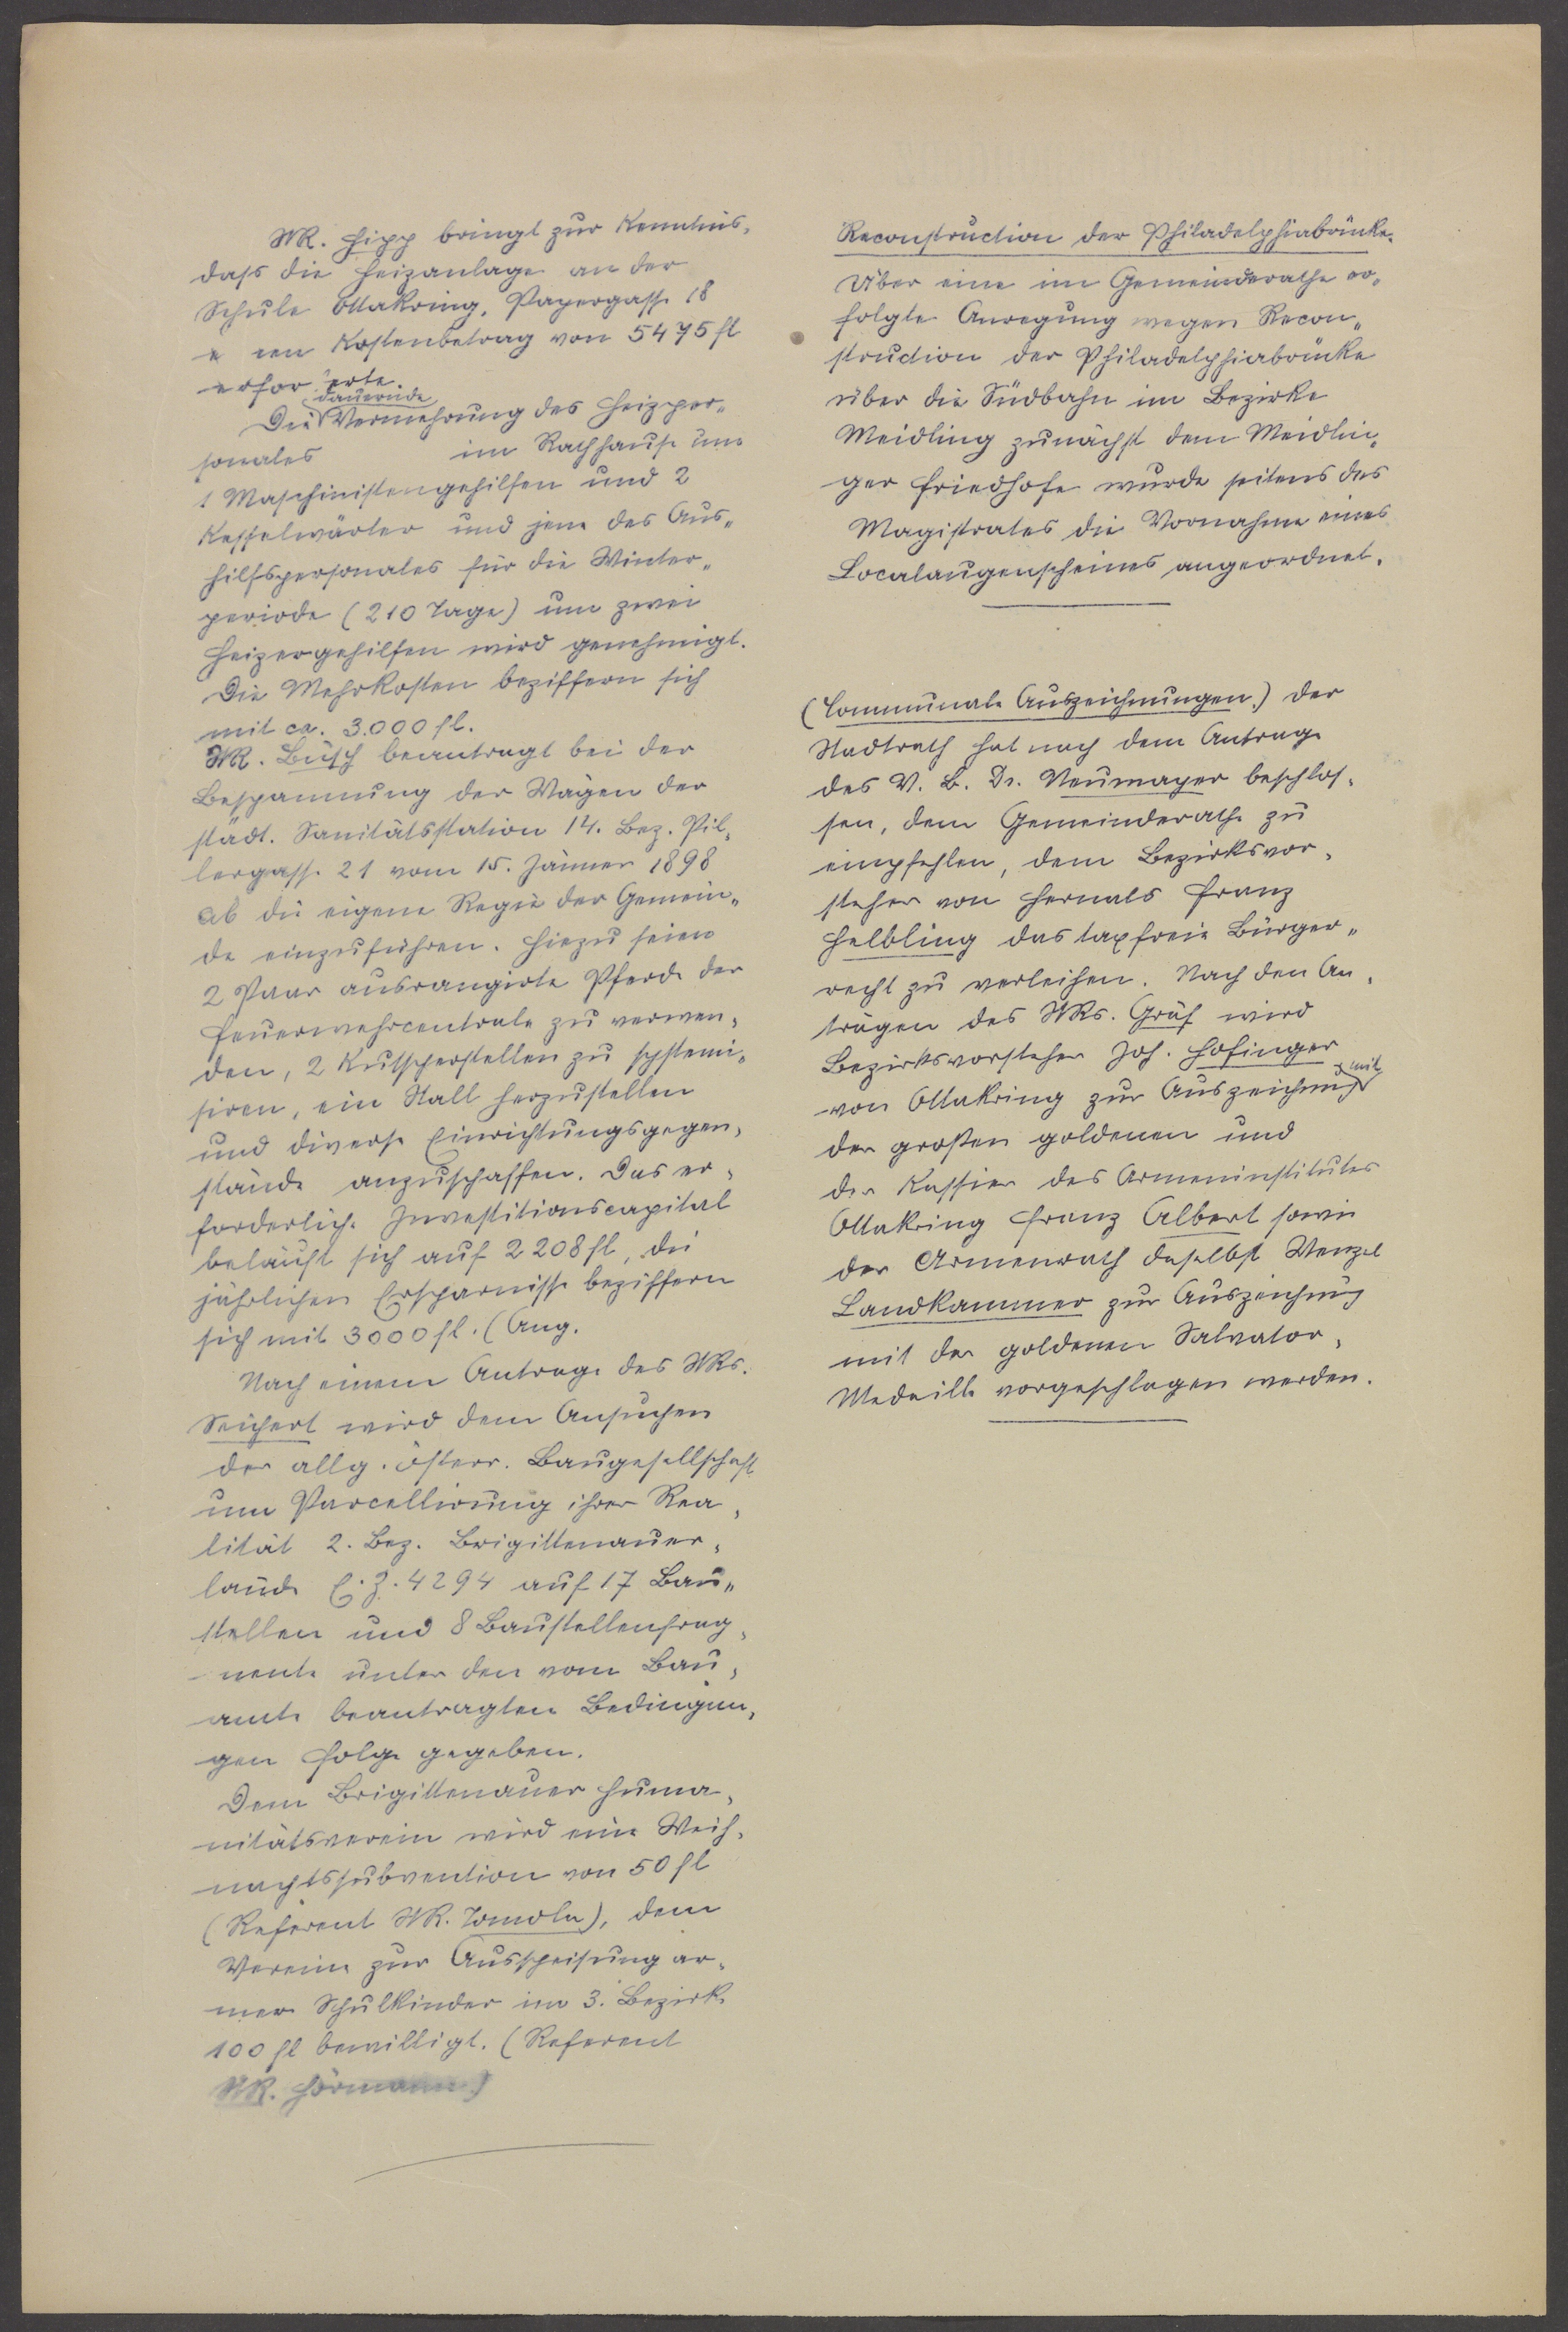 StR. Hipp bringt zur Kenntnis,
dass die Heizanlage an der
Schule Ottakring, Payergasse 18
e nen Kostenbetrag von 5475 fl
erfor erte.
dauernde
Die Vermehrung des Heizper„
sonales im Rathhause um
1 Maschinistengehilfen und 2
Kesselwärter und jene des Aus„
hilfspersonales für die Winter„
periode (210 Tage) um zwei
Heizergehilfen wird genehmigt.
Die Mehrkosten beziffern sich
mit ca. 3.000 fl.
StR. Büsch beantragt bei der
Bespannung der Wägen der
städt. Sanitätsstation 14. Bez. Pil„
lergasse 21 vom 15. Jänner 1898
ab die eigene Regie der Gemein„
de einzuführen. Hiezu seien
2 Paar ausrangirte Pferde der
Feuerwehrcentrale zu verwen„
den, 2 Kutscherstellen zu systemi„
siren, ein Stall herzustellen
und diverse Einrichtungsgegen„
stände anzuschaffen. Das er„
forderliche Investitionscapital
beläuft sich auf 2208 fl, die
jährlichen Ersparnisse beziffern
sich mit 3000 fl. (Ang.
Nach einem Antrage des StRs.
Seichert wird dem Ansuchen
der allg. österr. Baugesellschaft
um Parcellirung ihrer Rea„
lität 2. Bez. Brigittenauer„
lände E. Z. 4294 auf 17 Bau„
stellen und 8 Baustellenfrag„
mente unter den vom Bau„
amte beantragten Bedingun„
gen Folge gegeben.
Dem Brigittenauer Huma„
nitätsverein wird eine Weih„
nachtssubvention von 50 fl
(Referent StR. Tomola), dem
Vereine zur Ausspeisung ar„
mer Schulkinder im 3. Bezirk
100 fl bewilligt. (Referent
StR. Hörmann)
Reconstruction der Philadelphiabrücke.
Über eine im Gemeinderathe er„
folgte Anregung wegen Recon„
struction der Philadelphiabrücke
über die Südbahn im Bezirke
Meidling zunächst dem Meidlin„
ger Friedhofe wurde seitens des
Magistrates die Vornahme eines
Localaugenscheines angeordnet.
(Communale Auszeichnungen.) Der
Stadtrath hat nach dem Antrage
des V. B. Dr. Neumayer beschlos„
sen, dem Gemeinderathe zu
empfehlen, dem Bezirksvor„
steher von Hernals Franz
Helbling das taxfreie Bürger„
recht zu verleihen. Nach den An„
trägen des StRs. Gräf wird
Bezirksvorsteher Joh. Hofinger
von Ottakring zur Auszeichnung mit
der großen goldenen und
der Kassier des Armeninstitutes
Ottakring Franz Albert sowie
der Armenrath daselbst Wenzel
Landkammer zur Auszeichnung
mit der goldenen Salvator„
Medaille vorgeschlagen werden.